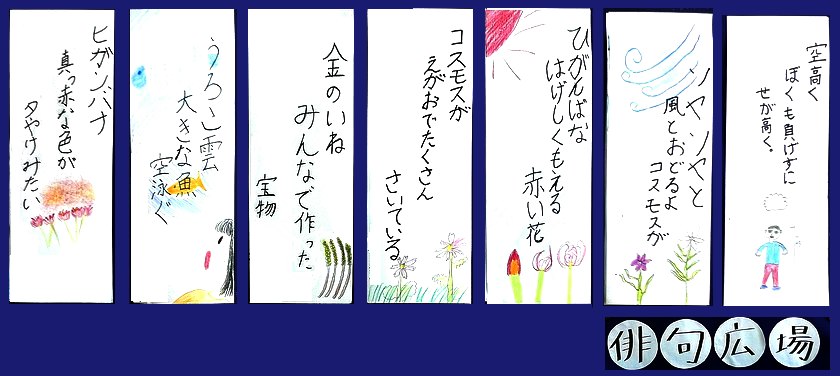 空高く
ぼくも負けずに
せが高く。
ソヤソヤと
風とおどるよ
コスモスが
ひがんばな
はげしくもえる
赤い花
コスモスが
えがおでたくさん
さいている
金のいね
みんなで作った
宝物
うろこ雲
大きな魚
空泳ぐ
ヒガンバナ
真っ赤な色が
夕やけみたい
俳句広場